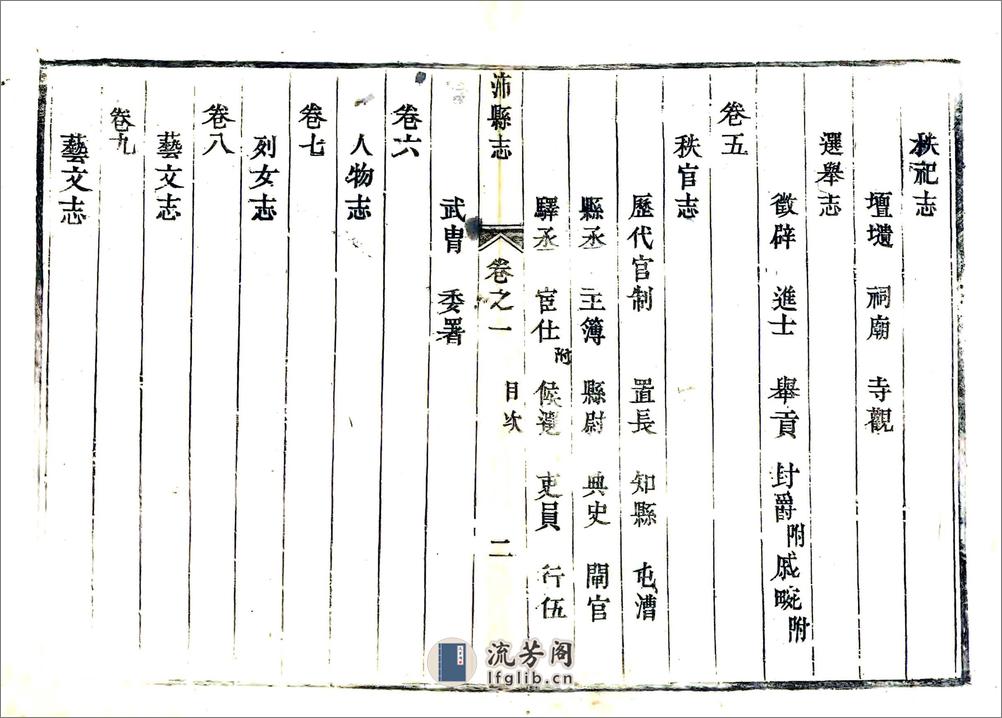 秩祀志
壇壝 祠廟 寺觀
選舉志
徵辟 進士 舉貢 封爵附 戚畹附
卷五
秩官志
歷代官制 置長 知縣 屯漕
縣丞 主簿 縣尉 典史 閘官
驛丞 宦仕附 候選 吏員 行伍
沛縣志 卷之一 目次 二
武胄 委署
卷六
人物志
卷七
列女志
卷八
藝文志
卷九
藝文志
流芳阁
lfglib.cn